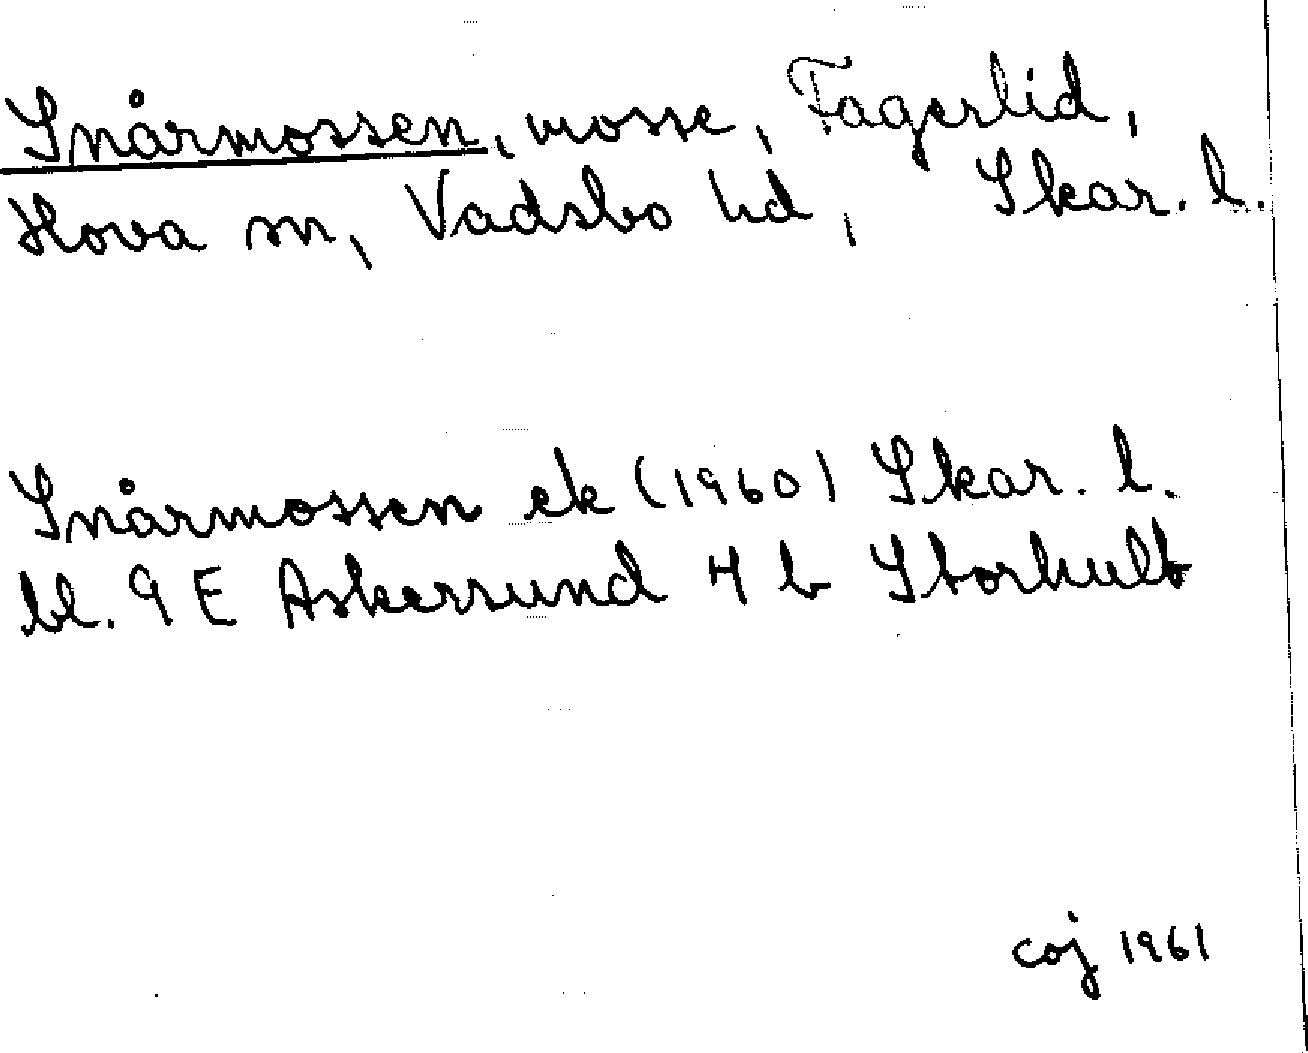 Snårmossen, mosse, Fagerlid,
Hova sn, Vadsbo hd, Skar. l.
Snårmossen ek (1960) Skar. l.
bl. 9 E Askersund 4 b Storhult
coj 1961